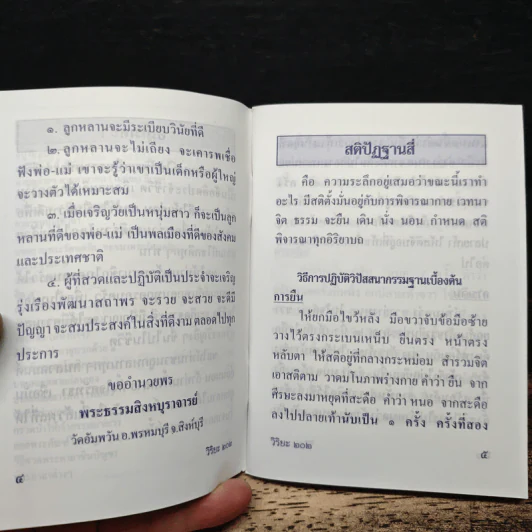 ๑. ลูกหลานจะมีระเบียบวินัยที่ดี
๒. ลูกหลานจะไม่เถียง จะเคารพเชื่อ
ฟังพ่อ-แม่ เขาจะรู้ว่าเขาเป็นเด็กหรือผู้ใหญ่
จะวางตัวได้เหมาะสม
๓. เมื่อเจริญวัยเป็นหนุ่มสาว ก็จะเป็นลูก
หลานที่ดีของพ่อ-แม่ เป็นพลเมืองที่ดีของสังคม
และประเทศชาติ
๔. ผู้ที่สวดและปฏิบัติเป็นประจำจะเจริญ
รุ่งเรืองพัฒนาสถาพร จะรวย จะสวย จะดีมี
ปัญญา จะสมประสงค์ในสิ่งที่ดีงาม ตลอดไปทุก
ประการ
ขออำนวยพร
พระธรรมสิงหบุราจารย์
วัดอัมพวัน อ.พรหมบุรี จ.สิงห์บุรี
วิริยะ ๒๐๒
๔
สติปัฏฐานสี่
คือ ความระลึกอยู่เสมอว่าขณะนี้เราทำ
อะไร มีสติตั้งมั่นอยู่กับการพิจารณากาย เวทนา
จิต ธรรม จะยืน เดิน นั่ง นอน กำหนด สติ
พิจารณาทุกอิริยาบถ
วิธีการปฏิบัติวิปัสสนากรรมฐานเบื้องต้น
การยืน
ให้ยกมือไขว้หลัง มือขวาจับข้อมือซ้าย
วางไว้ตรงกระเบนเหน็บ ยืนตรง หน้าตรง
หลับตา ให้สติอยู่ที่กลางกระหม่อม สำรวมจิต
เอาสติตาม วาดมโนภาพร่างกาย คำว่า ยืน จาก
ศีรษะลงมาหยุดที่สะดือ คำว่า หนอ จากสะดือ
ลงไปปลายเท้านับเป็น ๑ ครั้ง ครั้งที่สอง
วิริยะ ๒๐๒
๕